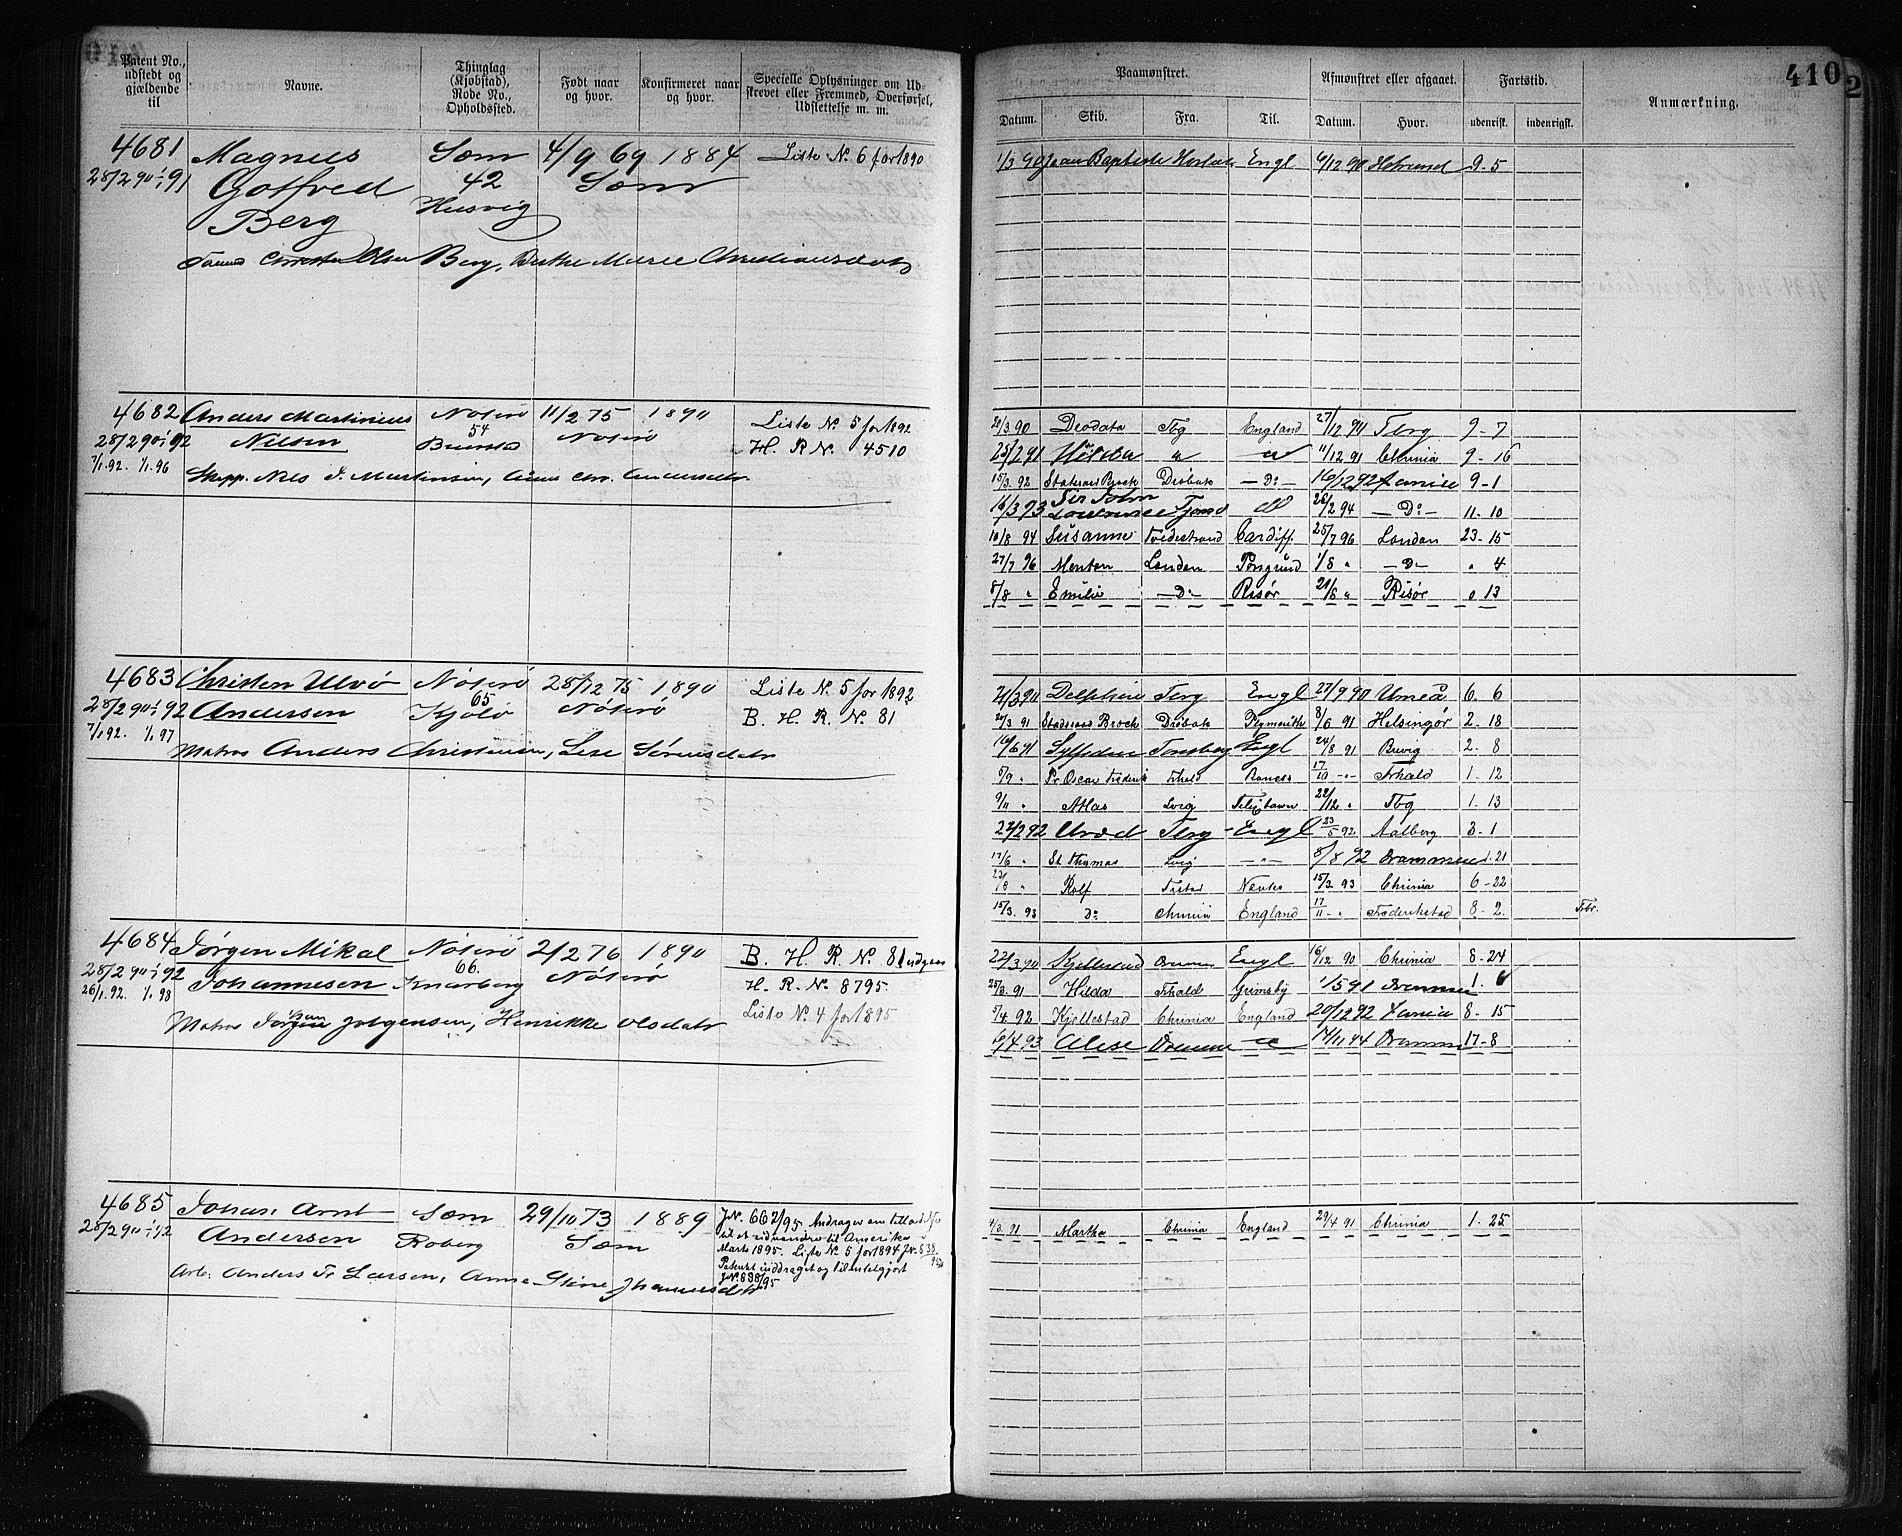 Patent No., udstedt og gjældende til | Navne. | Thinglag (Kjøbstad), Rode No., Opholdssted. | Født naar og hvor. | Konfirmeret naar og hvor. | Specielle Oplysninger om Udskrevet eller Fremmed, Overførsel, Udslettelse m. m.
4681 Magnus Sem 4/9 69 1884 Liste No. 6 for 1890
28/2 90 1/1 91 Gotfred 42 Sem
Berg Husvig
Berg,
4682 Anders Martinius Nøterø 11/2 75 1890 Liste No. 5 for 1892
28/2 90 1/1 92 Nilsen 54 Nøterø H. R. No. 4510
7/1. 92. 1/1. 96
Skipp. Nils J. Martinsen, Andersdtr
4683 Christen Ulvø Nøterø 28/12 75 1890 Liste No. 5 for 1892
28/2 90 1/1 92 Andersen 65 Nøterø B. H. R. No. 81
7/1 92. 1/1 97 Kjølø
Matros Anders Christensen, Lise Sørensdatr
4684 Jørgen Mikal Nøterø 2/2 76 1890 B. H. R. No. 81 udgaar
28/2 90 1/1 92 Johannesen 66. Nøterø H. R. No. 8795.
26/1. 92. 1/1. 98 Knarberg Liste No. 4 for 1895
Matros Jørgensen, Henrikke Olsdatr
4685 Johan Arnt Sem 29/10 73 1889 J.No. 662/95 Andrager om tillad
28/2 90 1/1 92 Andersen Roberg Sem til at udvandre til Amerika
Marts 1895. Liste No. 5 for 1894 J.No. 638/95
Patent inddraget og tilintetgjort
J.No. 638/95
Arb. Anders Fr Larsen, Anne Stine Johannesdatr
410
2
Paamønstret. | Afmønstret eller afgaaet. | Fartstid. | Anmærkning.
Datum. | Skib. | Fra. | Til. | Datum. | Hvor. | udenrigsk. | indenrigsk.
1/3 90 Jean Baptiste Engl 9/12 90 9-5
20/3. 90 Deodata Tbg England 27/12 90 Tbrg 9-7
25/2 91 Hilda " " 11/12 91 Chrinia 9-16
15/3. 92 Statsraad Broch Drøbak -Do- 16/12 92 9-1
16/3 93 Sir John Lawrence Tjømø do 26/2 94 -Do- 11-10
10/8 94 Susanne Tvedestrand Cardiff 25/7 96 London 23-15
27/7 96 Menton London Porsgrund 1/8 " -Do- " 4
8/8 " Emilie -Do- Risør 21/8 " Risør 0 13
21/3 90 Delphin Tbrg Engl 27/9 90 Umeå 6 6
20/3 91 Stadsraad Broch Drøbak Plymouth 8/6 91 Helsingør 2-18
16/6 91 Tønsberg Engl 24/8 91 Brevig 2-8
5/9 " Pr. Oscar Frederik Frhald 17/10 -"- Frhald 1-12
9/11 " Atlas Lvig 22/12 " Tbg 1-13
22/2 92 Tbrg Engl 23/5 92 Aalborg 3-1
17/6 " St. Thomas Lvig -"- 8/8 92 Drammen 1.21
23/8 " Rolf Nantes 15/3. 93 Chrinia 6-22
15/3. 93 Do Chrinia England 17/11 -" Frederikstad 8-2. Fbr.
22/3 90 Kjellestad Engl 16/12 90 Chrinia 8-24
25/3. 91 Hilda Frhald Grimsby 1/5 91 Drammen 1. 6
5/4 92 Kjellestad Chrinia England 20/12 92 8-15
6/4 93 Drammen 14/11 94 Dramm 17-8
4/3. 91 Martha Chrinia England 29/4 91 Chrinia 1-25